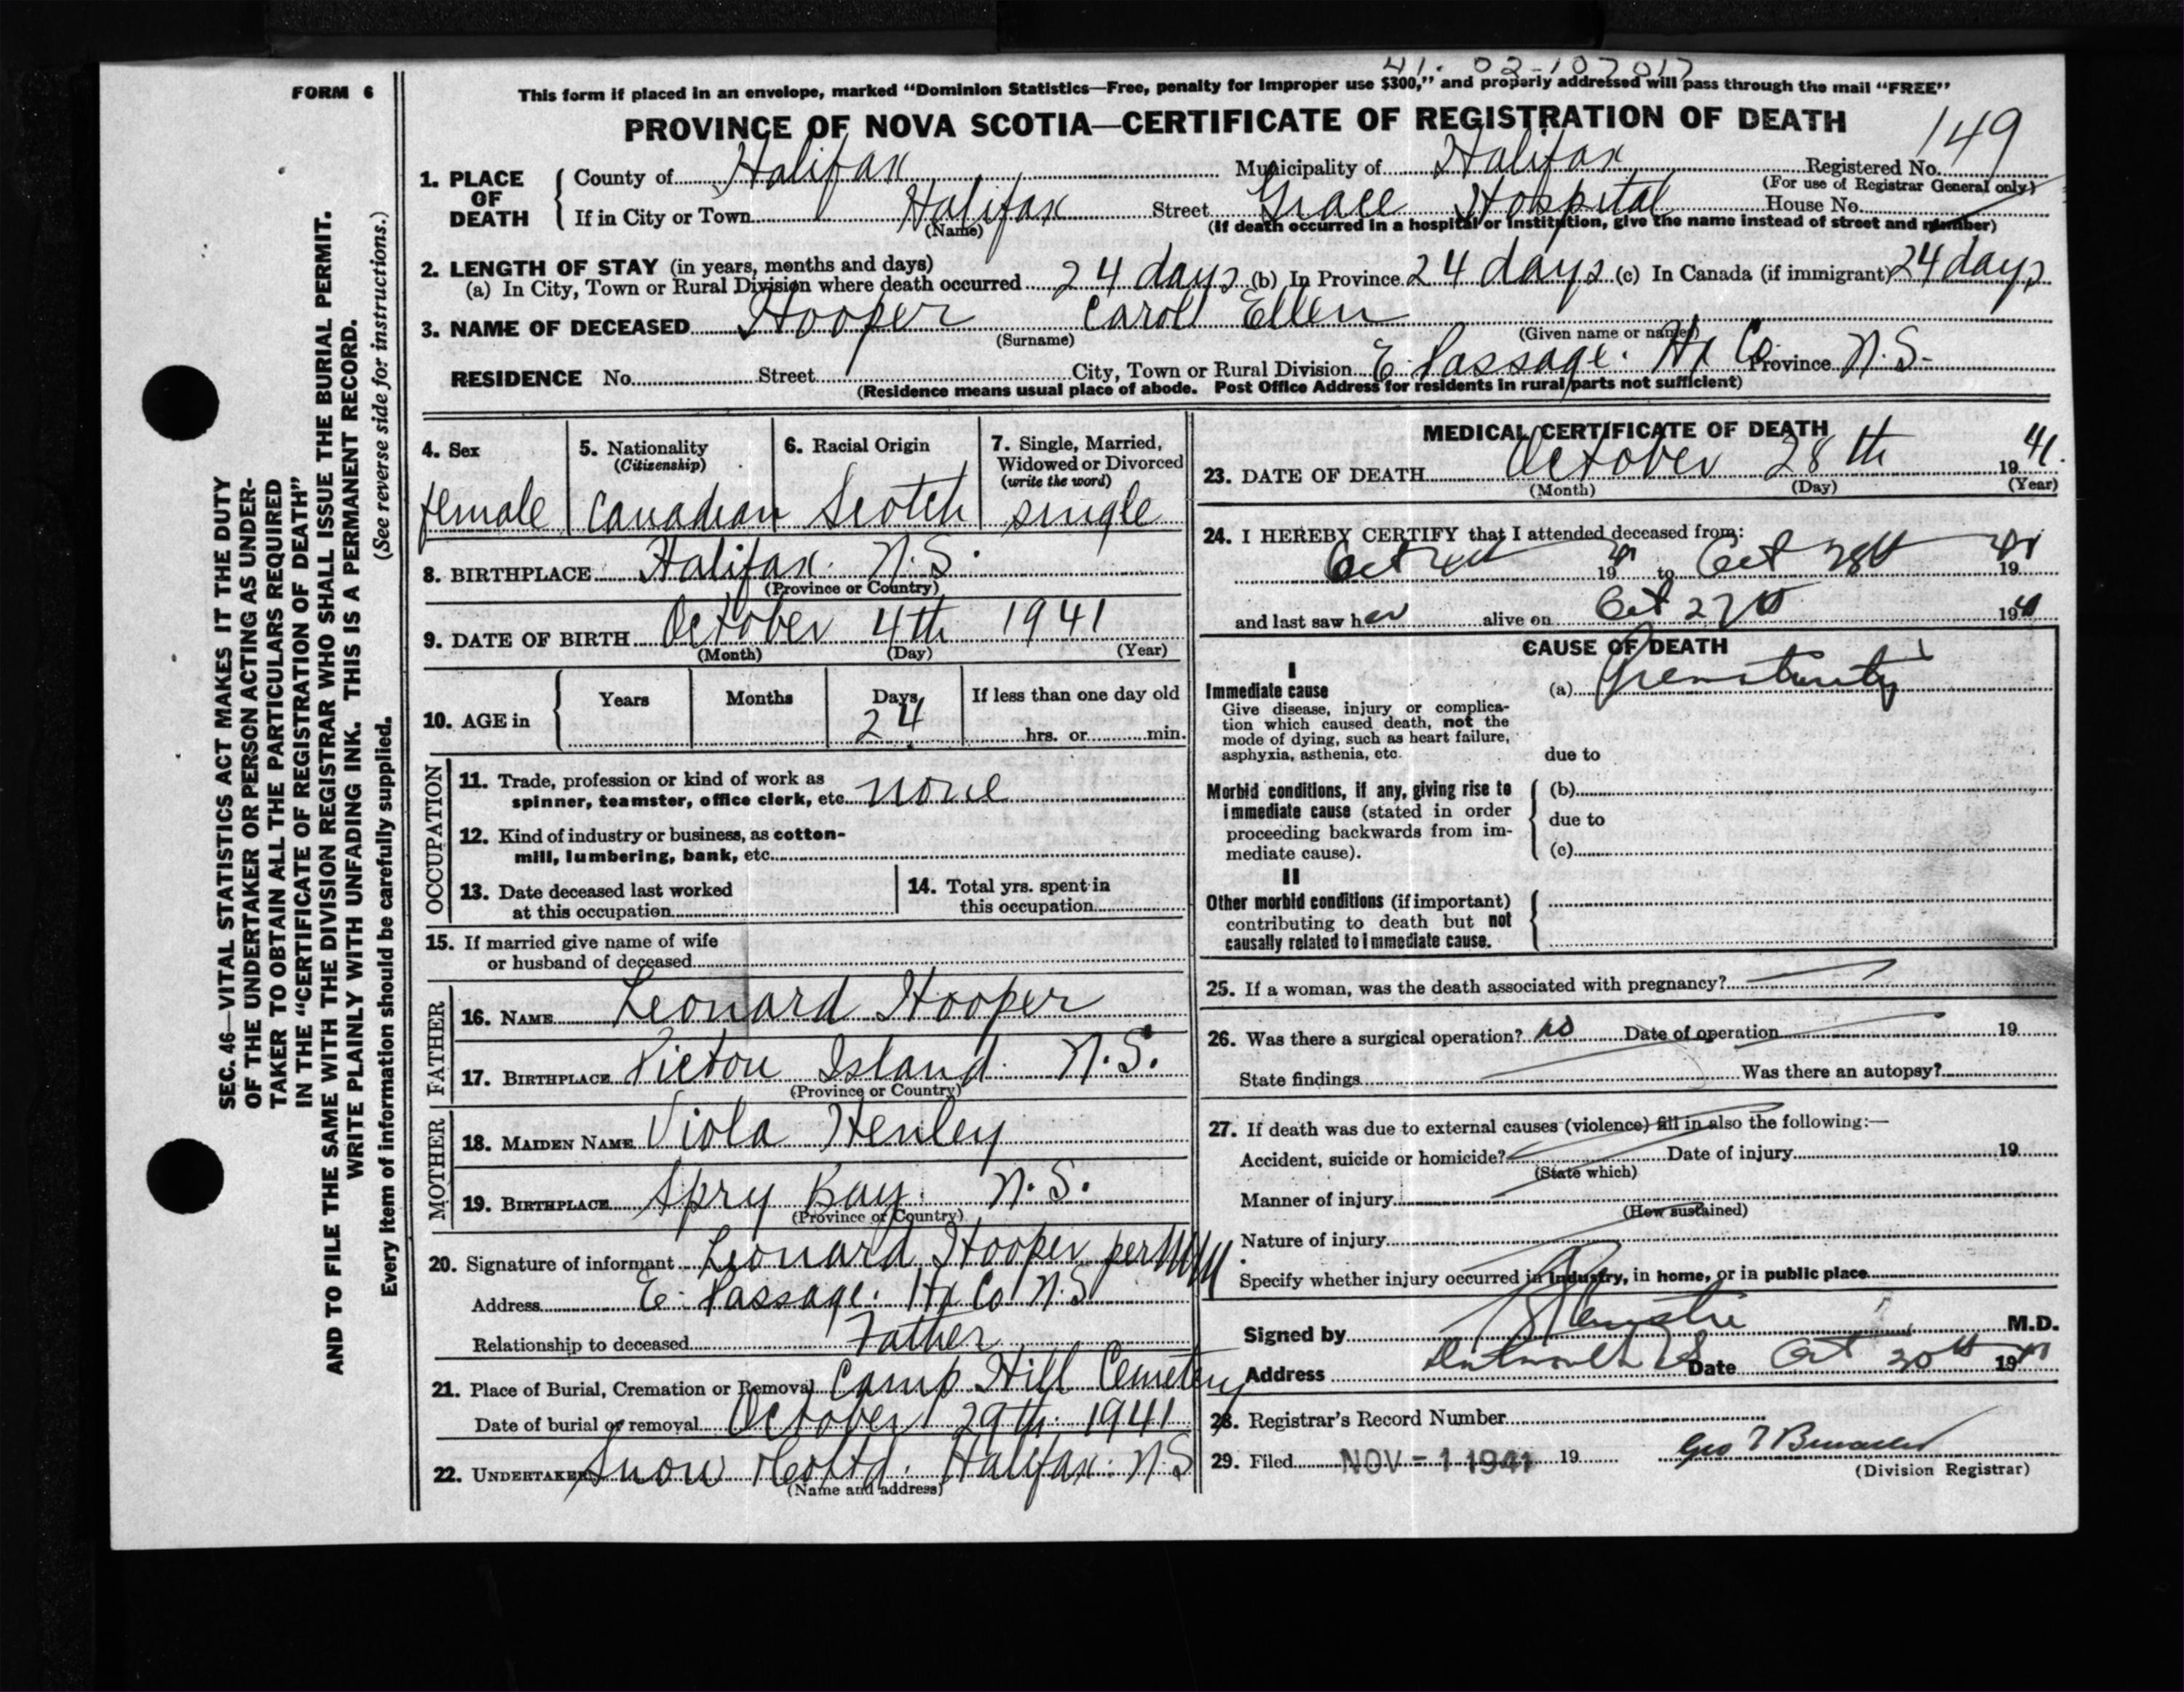 FORM 6
41. 02-107017
This form if placed in an envelope, marked "Dominion Statistics—Free, penalty for improper use $300," and properly addressed will pass through the mail "FREE"
PROVINCE OF NOVA SCOTIA—CERTIFICATE OF REGISTRATION OF DEATH
149
1. PLACE OF DEATH
County of Halifax Municipality of Halifax Registered No.
(For use of Registrar General only)
If in City or Town Halifax Street Grace Hospital House No.
(Name) (If death occurred in a hospital or institution, give the name instead of street and number)
2. LENGTH OF STAY (in years, months and days)
(a) In City, Town or Rural Division where death occurred 24 days (b) In Province 24 days (c) In Canada (if immigrant) 24 days
3. NAME OF DECEASED Hooper Carol Ellen
(Surname) (Given name or names)
RESIDENCE No. Street City, Town or Rural Division E. Passage. Hx Co. Province N.S-
(Residence means usual place of abode. Post Office Address for residents in rural parts not sufficient)
4. Sex
female
5. Nationality
(Citizenship)
Canadian
6. Racial Origin
Scotch
7. Single, Married,
Widowed or Divorced
(write the word)
single
8. BIRTHPLACE Halifax. N.S.
(Province or Country)
9. DATE OF BIRTH October 4th 1941
(Month) (Day) (Year)
10. AGE in
Years Months Days If less than one day old
24 hrs. or min.
OCCUPATION
11. Trade, profession or kind of work as
spinner, teamster, office clerk, etc. none
12. Kind of industry or business, as cotton-
mill, lumbering, bank, etc.
13. Date deceased last worked
at this occupation
14. Total yrs. spent in
this occupation
15. If married give name of wife
or husband of deceased
FATHER
16. NAME Leonard Hooper
17. BIRTHPLACE Pictou Island. N.S.
(Province or Country)
MOTHER
18. MAIDEN NAME Viola Henley
19. BIRTHPLACE Spry Bay. N.S.
(Province or Country)
20. Signature of informant Leonard Hooper per
Address E. Passage. Hx Co N.S
Relationship to deceased Father
21. Place of Burial, Cremation or Removal Camp Hill Cemetery
Date of burial or removal October 29th. 1941
22. UNDERTAKER Snow & Co Ltd. Halifax. N.S
(Name and address)
MEDICAL CERTIFICATE OF DEATH
23. DATE OF DEATH October 28th 1941.
(Month) (Day) (Year)
24. I HEREBY CERTIFY that I attended deceased from:
Oct 4th 1941 to Oct 28th 1941
and last saw her alive on Oct 27th 1941
CAUSE OF DEATH
I
Immediate cause
Give disease, injury or complica-
tion which caused death, not the
mode of dying, such as heart failure,
asphyxia, asthenia, etc.
(a) Prematurity
due to
Morbid conditions, if any, giving rise to
immediate cause (stated in order
proceeding backwards from im-
mediate cause).
(b)
due to
(c)
II
Other morbid conditions (if important)
contributing to death but not
causally related to immediate cause.
25. If a woman, was the death associated with pregnancy?
26. Was there a surgical operation? no Date of operation 19
State findings Was there an autopsy?
27. If death was due to external causes (violence) fill in also the following:—
Accident, suicide or homicide? Date of injury 19
(State which)
Manner of injury
(How sustained)
Nature of injury
Specify whether injury occurred in industry, in home, or in public place
Signed by M.D.
Address Dartmouth NS Date Oct 30th 1941
28. Registrar's Record Number
29. Filed NOV - 1 1941 19
(Division Registrar)
SEC. 46—VITAL STATISTICS ACT MAKES IT THE DUTY
OF THE UNDERTAKER OR PERSON ACTING AS UNDER-
TAKER TO OBTAIN ALL THE PARTICULARS REQUIRED
IN THE "CERTIFICATE OF REGISTRATION OF DEATH"
AND TO FILE THE SAME WITH THE DIVISION REGISTRAR WHO SHALL ISSUE THE BURIAL PERMIT.
WRITE PLAINLY WITH UNFADING INK. THIS IS A PERMANENT RECORD.
(See reverse side for instructions.)
Every item of information should be carefully supplied.